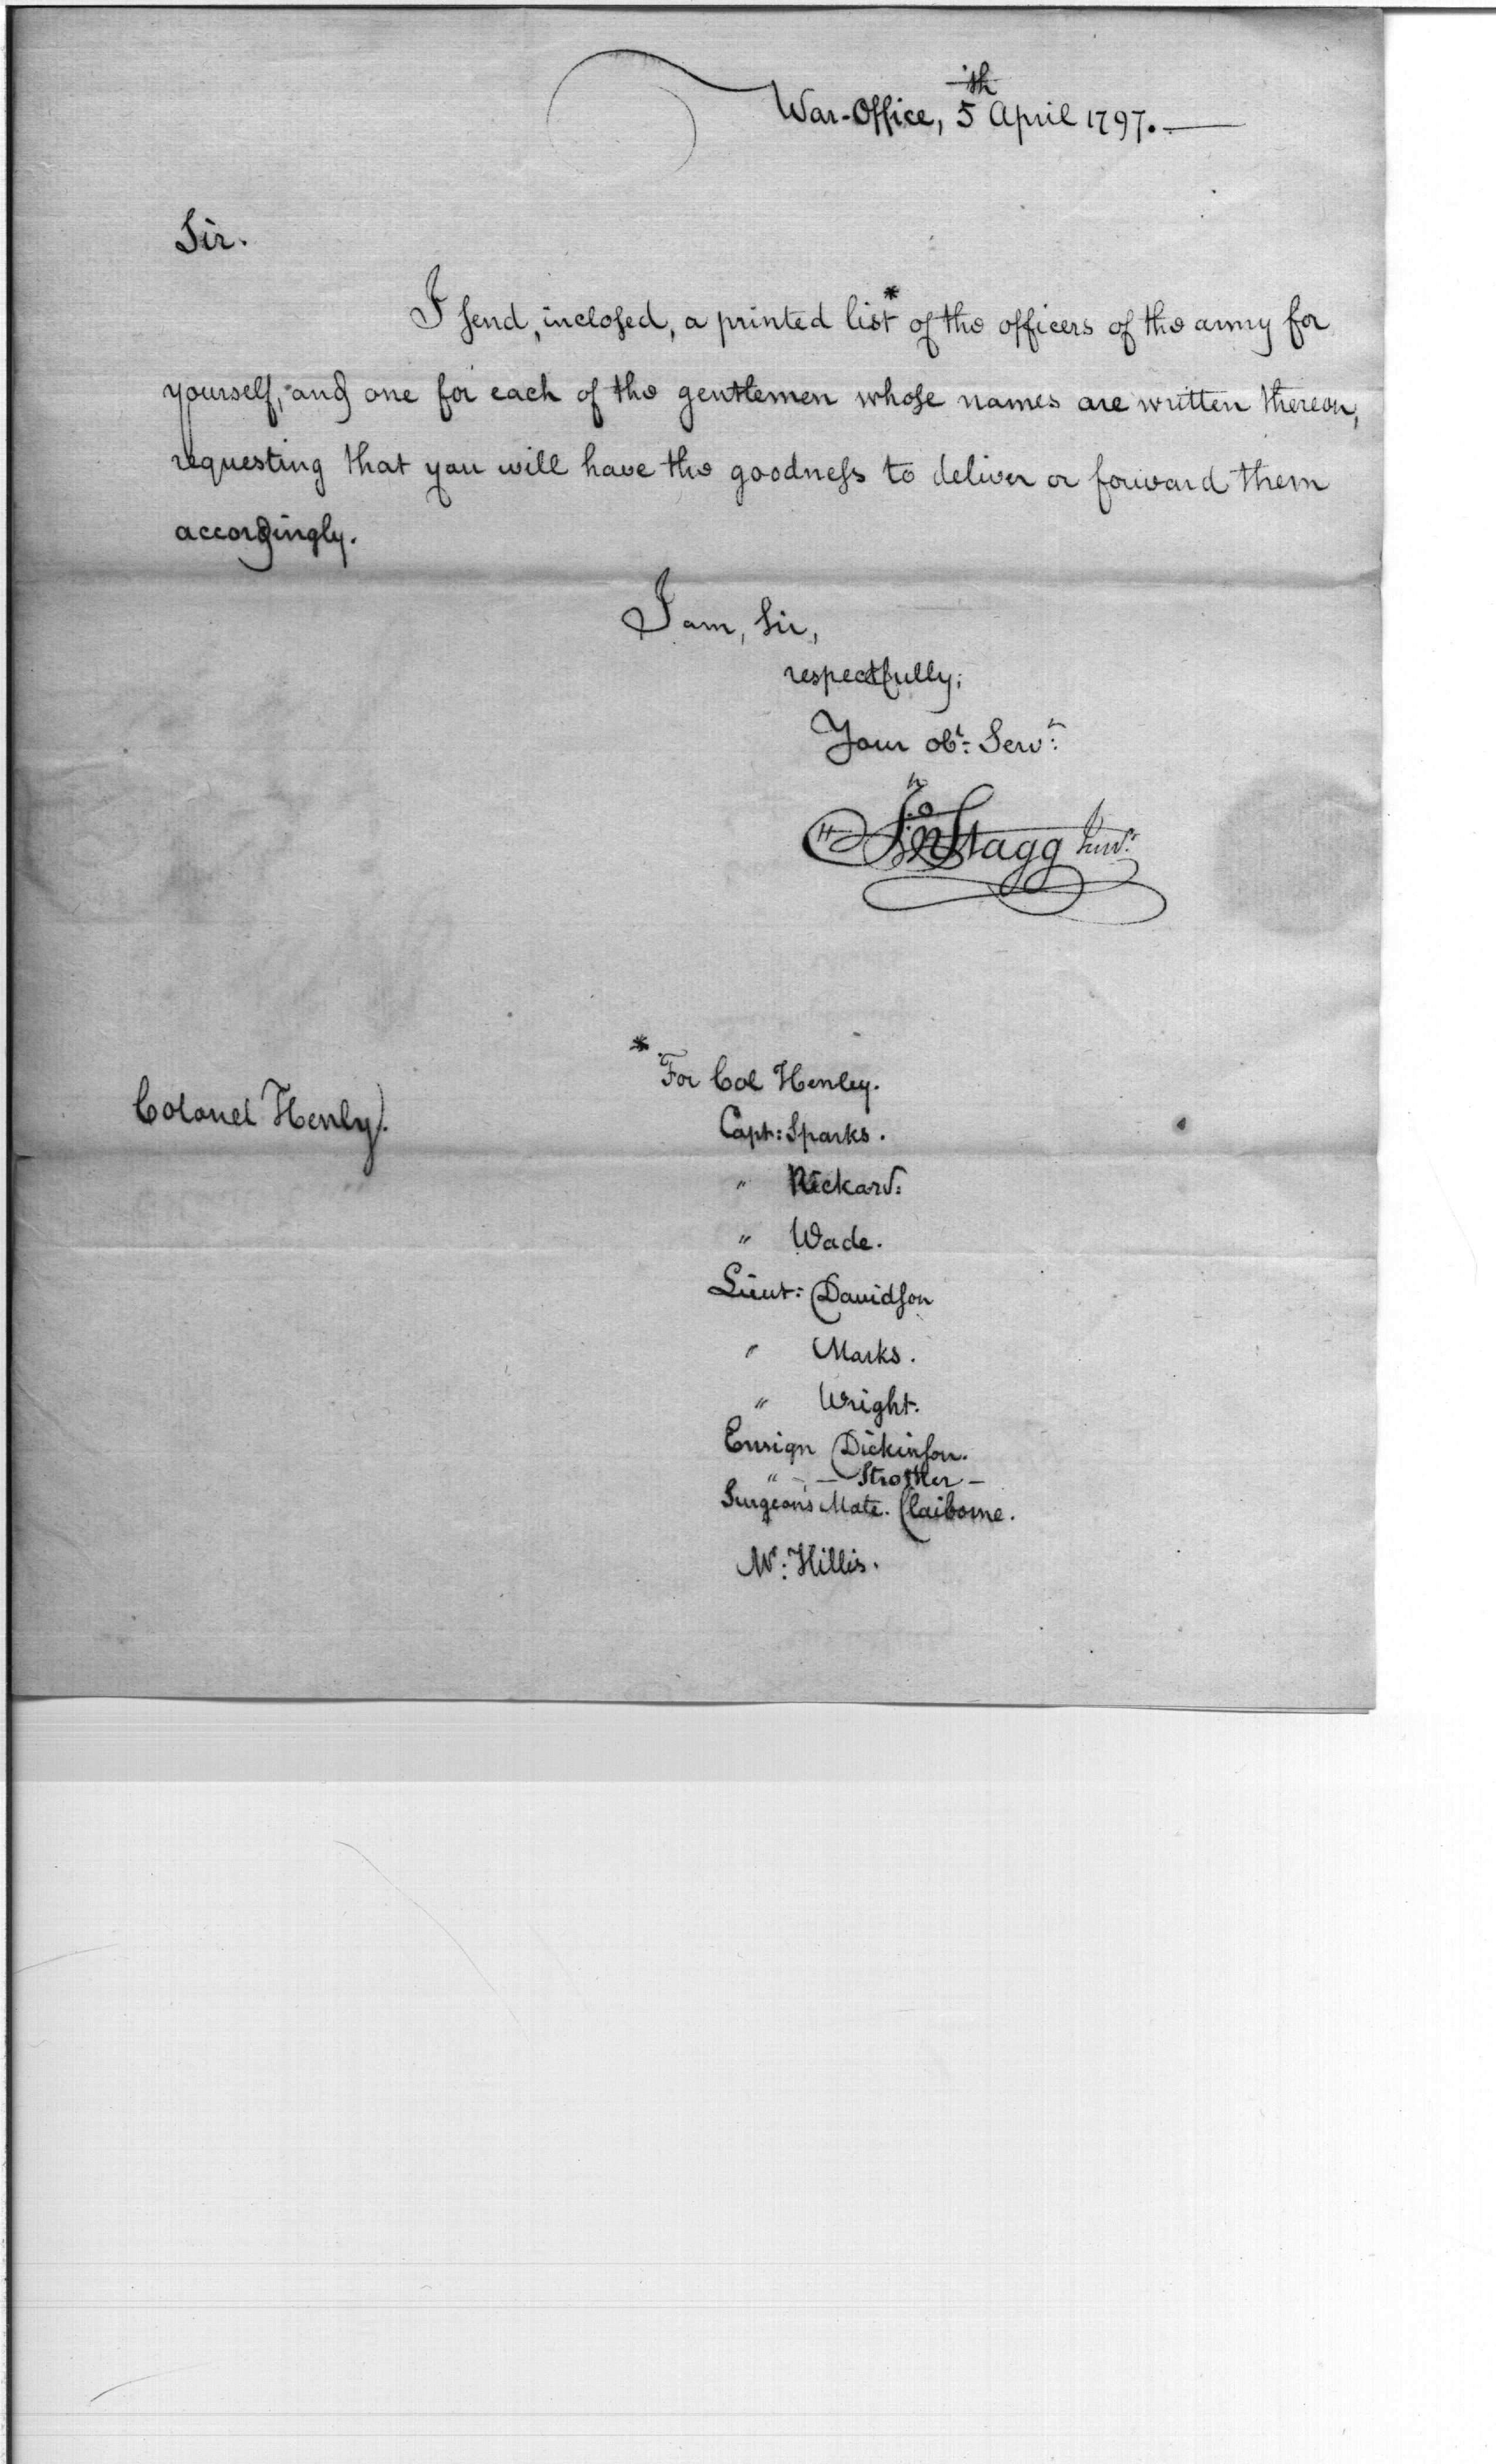 War-Office, 5th April 1797.
Sir.
I send, inclosed, a printed list* of the officers of the army for
yourself, and one for each of the gentlemen whose names are written thereon,
requesting that you will have the goodness to deliver or forward them
accordingly.
I am, Sir,
respectfully,
Your obt: Servt:
Jno Stagg Junr.
Colonel Henly.
* For Col Henley.
Capt: Sparks.
" Rickard:
" Wade.
Lieut: Davidson
" Marks.
" Wright.
Ensign Dickinson.
" - Strother -
Surgeon's Mate. Claiborne.
Mr: Hillis.